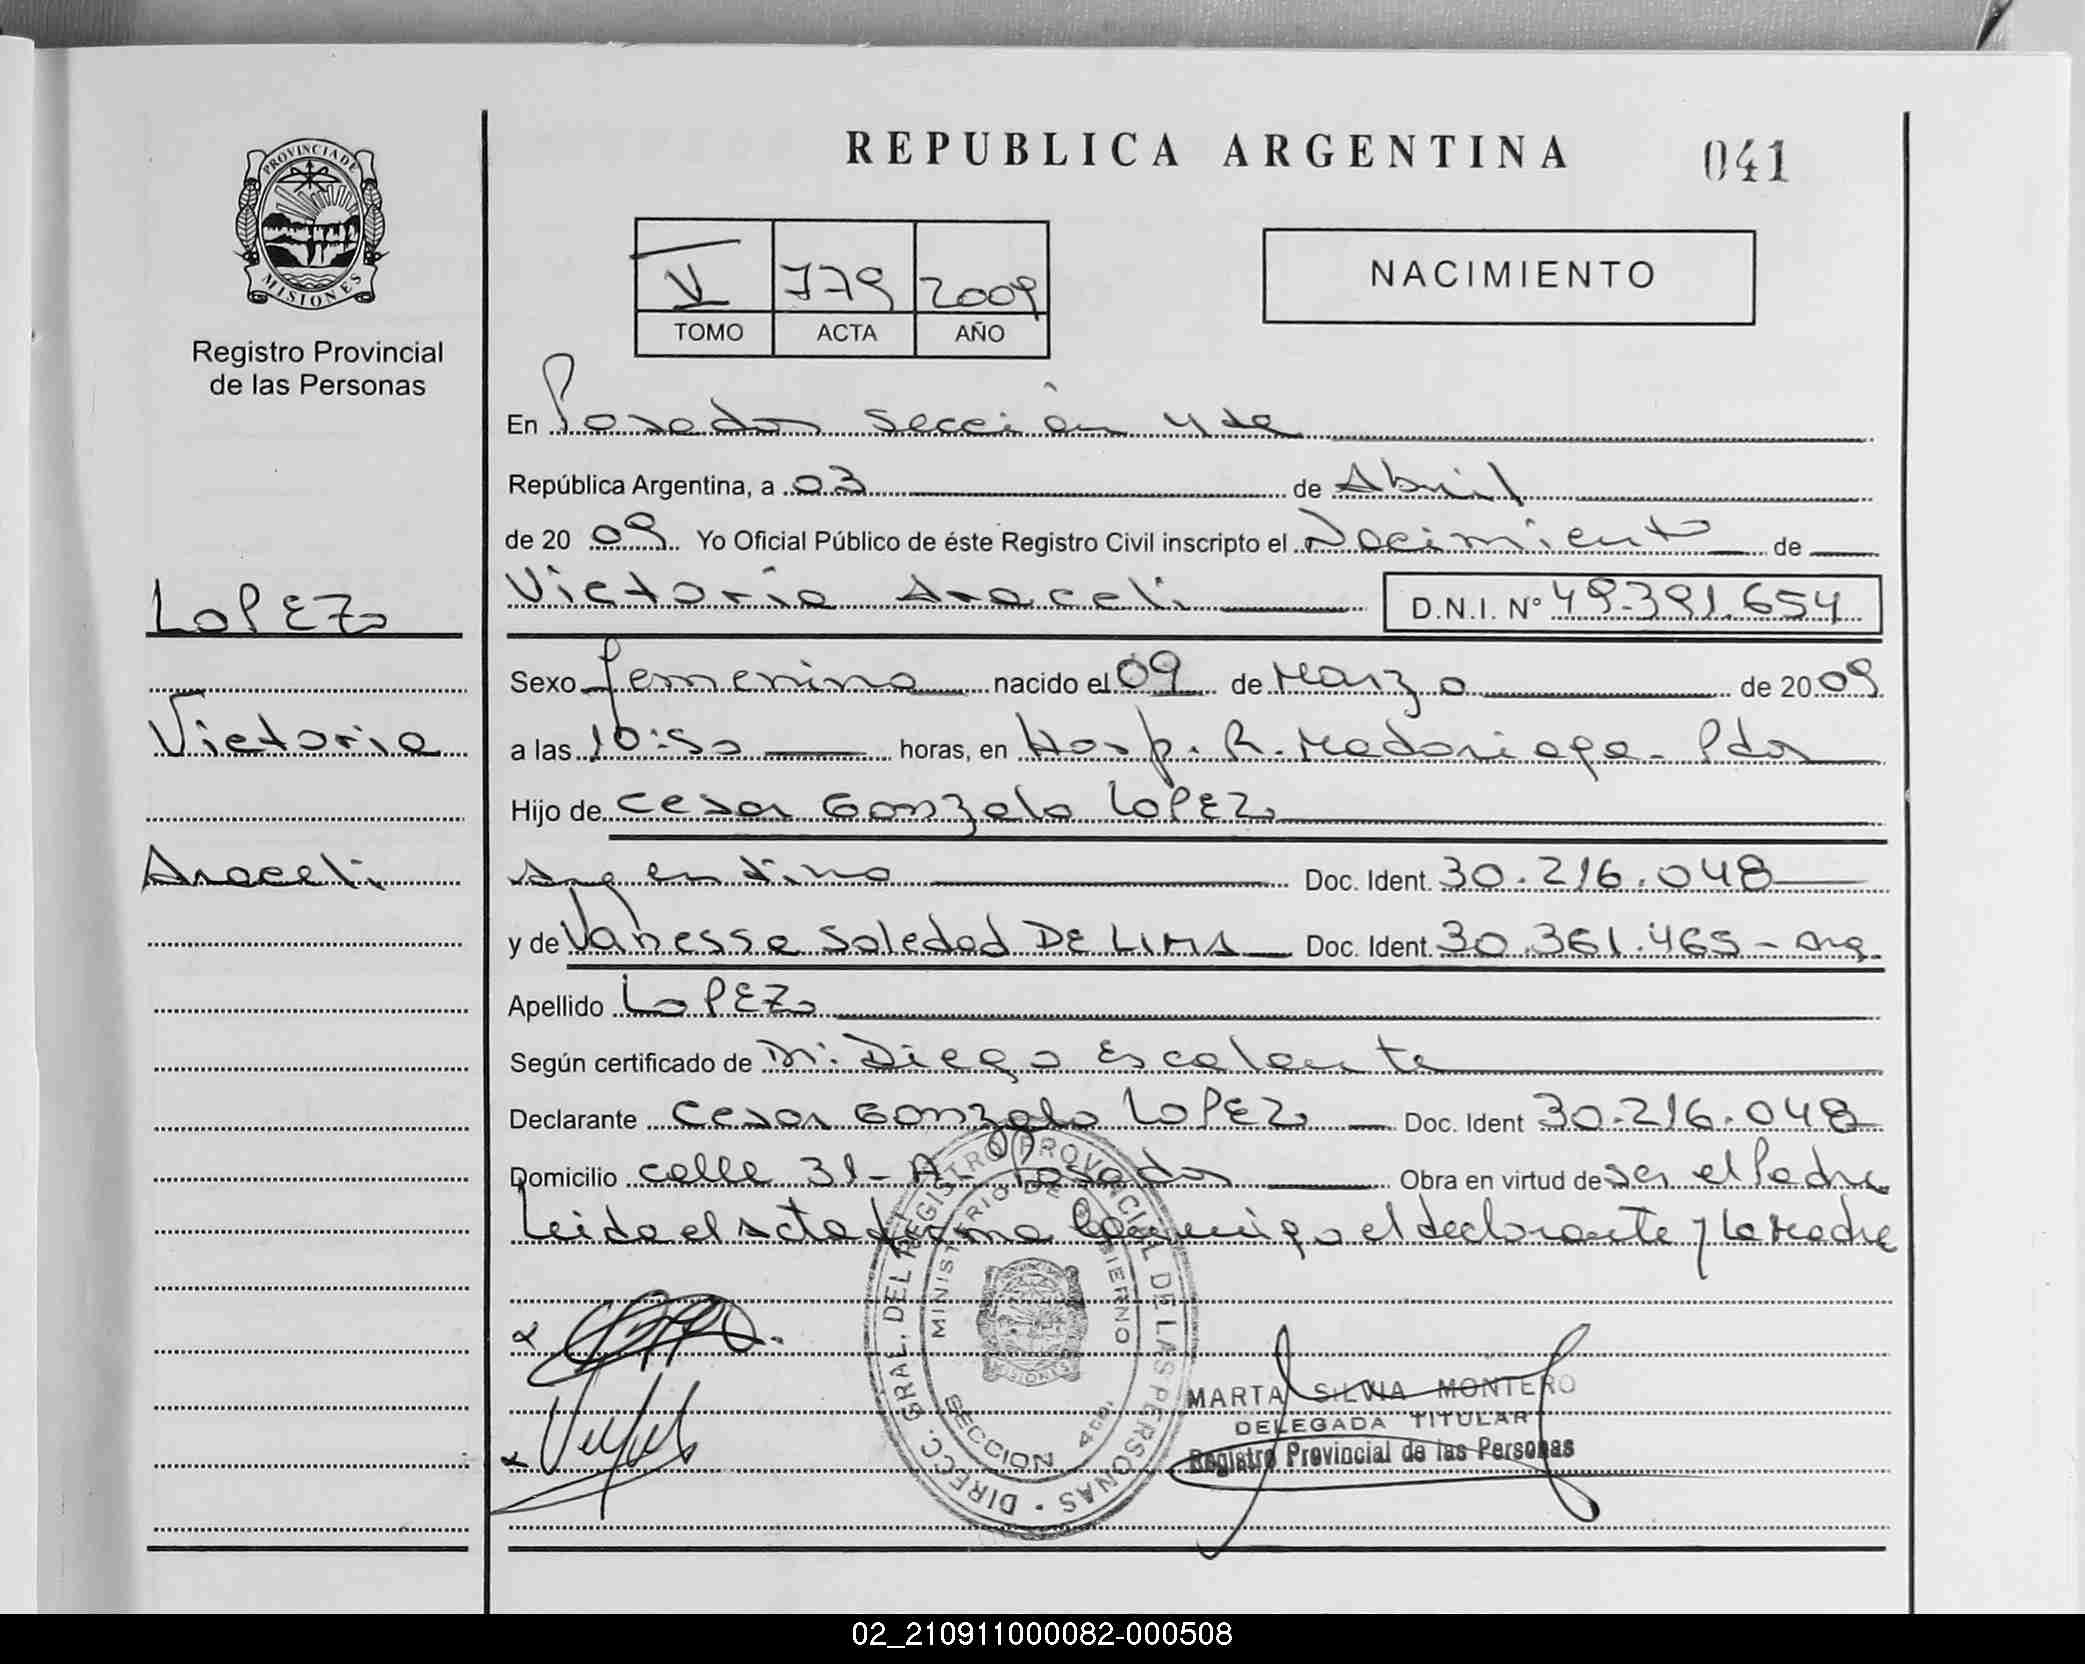 REPUBLICA ARGENTINA
041
PROVINCIA DE
MISIONES
Registro Provincial
de las Personas
V 779 2009
TOMO ACTA AÑO
NACIMIENTO
En Posadas sección 4ta
República Argentina, a 03 de Abril
de 2009 Yo Oficial Público de éste Registro Civil inscripto el Nacimiento de
Victoria Araceli D.N.I. Nº 49.391.654
LOPEZ
Victoria
Araceli
Sexo femenino nacido el 09 de Marzo de 2009
a las 10:50 horas, en Hosp. R. Madariaga - Pdas
Hijo de Cesar Gonzalo LOPEZ
Argentino Doc. Ident. 30.216.048
y de Vanessa Soledad DE LIMA Doc. Ident. 30.361.465 - Arg.
Apellido LOPEZ
Según certificado de Dr. Diego Escalante
Declarante Cesar Gonzalo LOPEZ Doc. Ident 30.216.048
Domicilio calle 31-A- Posadas Obra en virtud de ser el Padre
Leida el acta firma conmigo el declarante y la Madre
DIRECC. GRAL. DEL REGISTRO PROVINCIAL DE LAS PERSONAS
MINISTERIO DE GOBIERNO
MISIONES
SECCION 4ta.
MARTA SILVIA MONTERO
DELEGADA TITULAR
Registro Provincial de las Personas
02_210911000082-000508